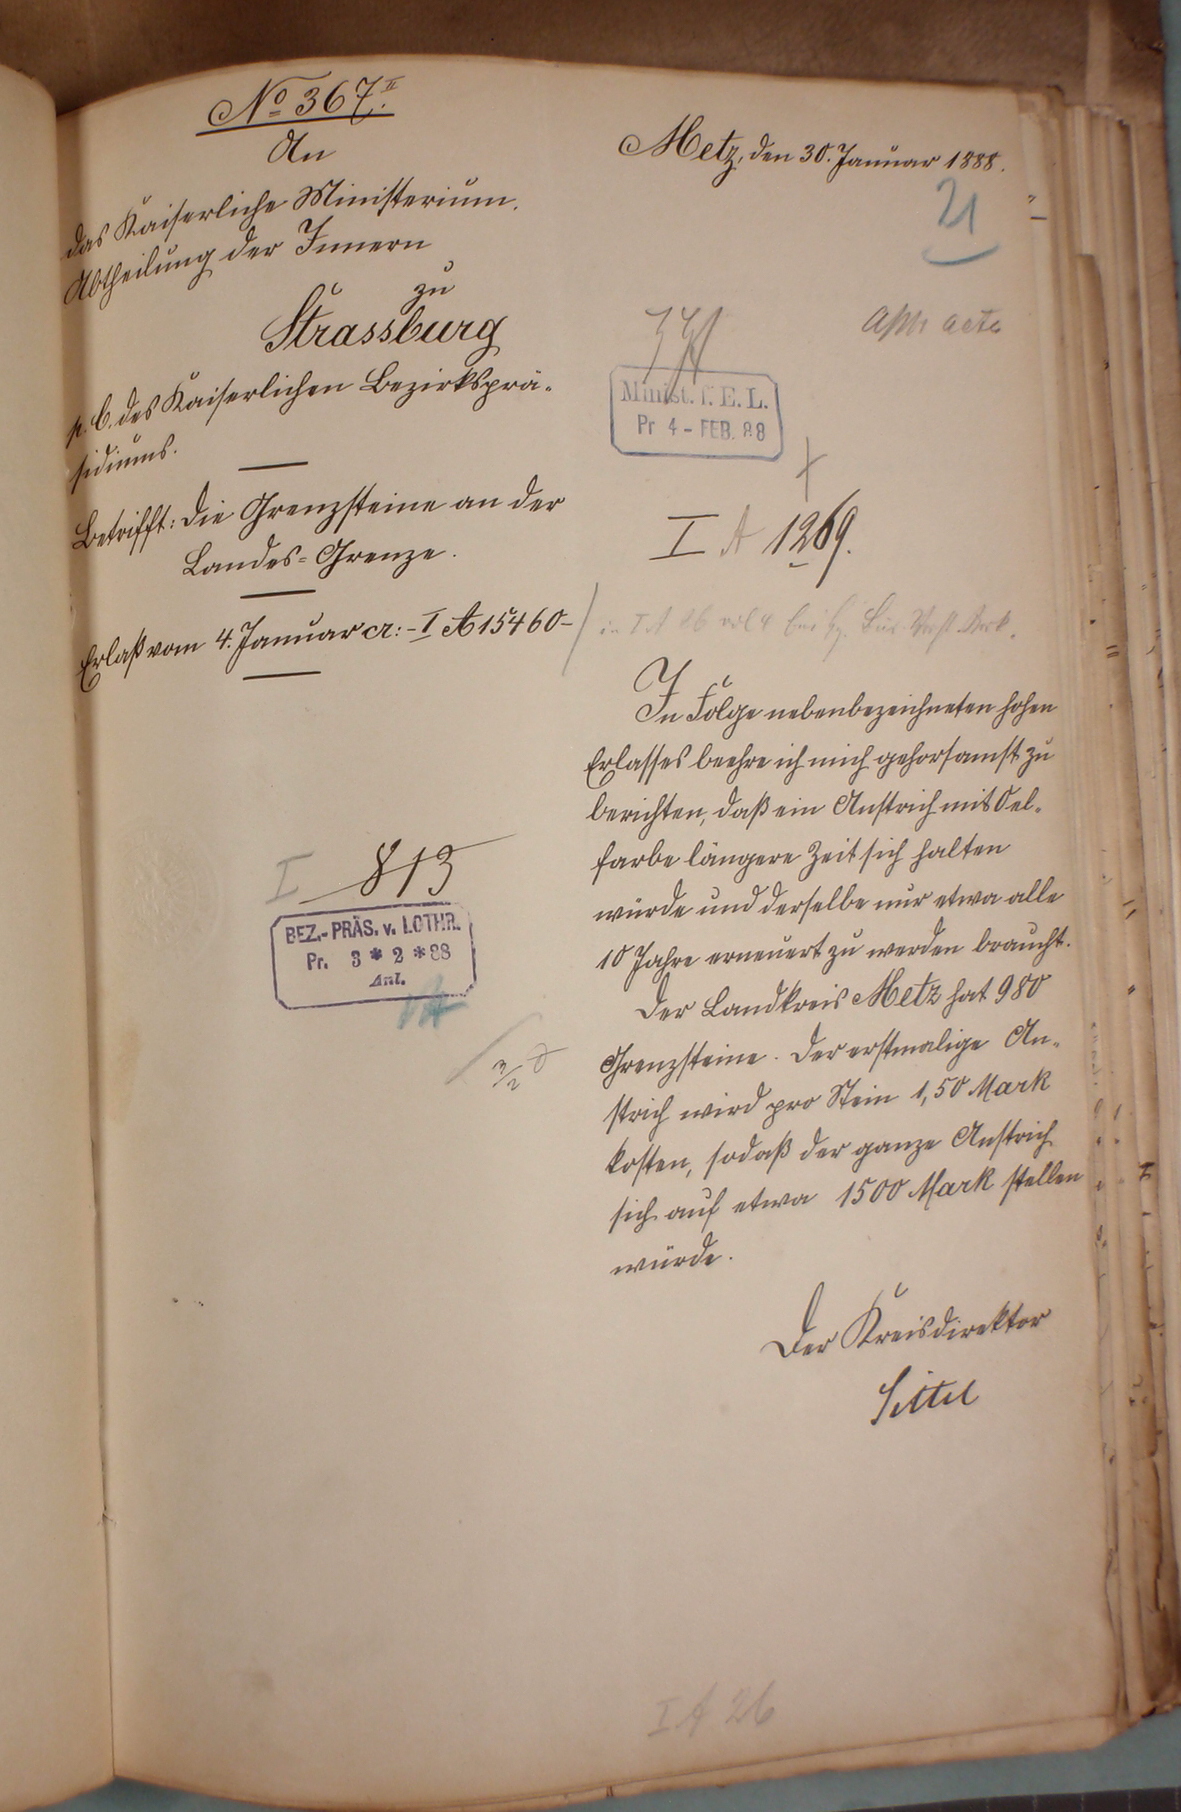 No 367.II
An
das Kaiserliche Ministerium.
Abtheilung der Innern
zu
Strassburg
p. C. des Kaiserlichen Bezirksprä-
sidiums.
Betrifft: die Grenzsteine an der
Landes-Grenze.
Erlaß vom 4. Januar cr: - I A 15460 -
I 813
BEZ.-PRÄS. v. LOTHR.
Pr. 3 * 2 * 88
Anl.
3/2
Metz, den 30. Januar 1888.
21
Minist. f. E. L.
Pr 4 - FEB. 88
I A 1269.
in I A 26 vol 4
In Folge nebenbezeichneten hohen
Erlasses beehre ich mich gehorsamst zu
berichten, daß ein Anstrich mit Oel-
farbe längere Zeit sich halten
würde und derselbe nur etwa alle
10 Jahre erneuert zu werden braucht.
Der Landkreis Metz hat 980
Grenzsteine. Der erstmalige An-
strich wird pro Stein 1,50 Mark
kosten, sodaß der ganze Anstrich
sich auf etwa 1500 Mark stellen
würde.
Der Kreisdirektor
I A 26